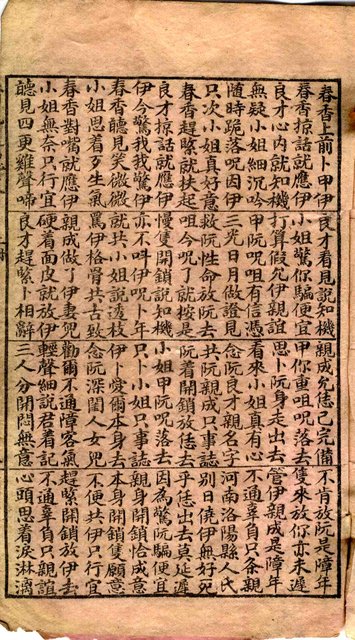 春香上前卜甲伊 良才看見說知機 親成允恁已完備 不肯放阮是障年
春香掠話就應伊 小姐驚你騙便宜 甲你重咀咒落去 隻來放你亦未遲
良才心內就知機 打算假允伊親誼 思卜阮身走出去 管伊親成是障年
無疑小姐細沉吟 甲阮咒咀有信憑 看來小姐真有心 不通辜負只條親
隨時跪落咒因伊 三光日月做證見 念阮良才親名字 河南洛陽縣人氏
只次小姐真好意 救阮性命放阮去 共阮親成只事誌 別日僥伊無好死
春香趕緊就扶起 咀今咒了就按是 阮着開鎖放恁去 乎恁出去莫延遲
良才掠話就應伊 慢隻開鎖說知機 小姐甲阮咒落去 因為驚阮騙便宜
伊今驚我我驚伊 亦不呌伊咒卜年 只小姐只事誌 親身開鎖恰成意
春香聽見笑微微 就共小姐說透枝 伊卜愛爾本身去 本身開鎖隻願意
小姐思着歹生氣 罵伊格骨共古致 念阮深閨人女兒 不便共伊只行宜
春香對嘴就應伊 親成做了伊妻兒 勸爾不通障客氣 趕緊開鎖放伊去
小姐無奈只行宜 硬着面皮就放伊 輕聲細說君着記 不通辜負只親誼
聽見四更雞聲啼 良才趕緊卜相辭 三人分開悶無意 心頭思着淚淋漓